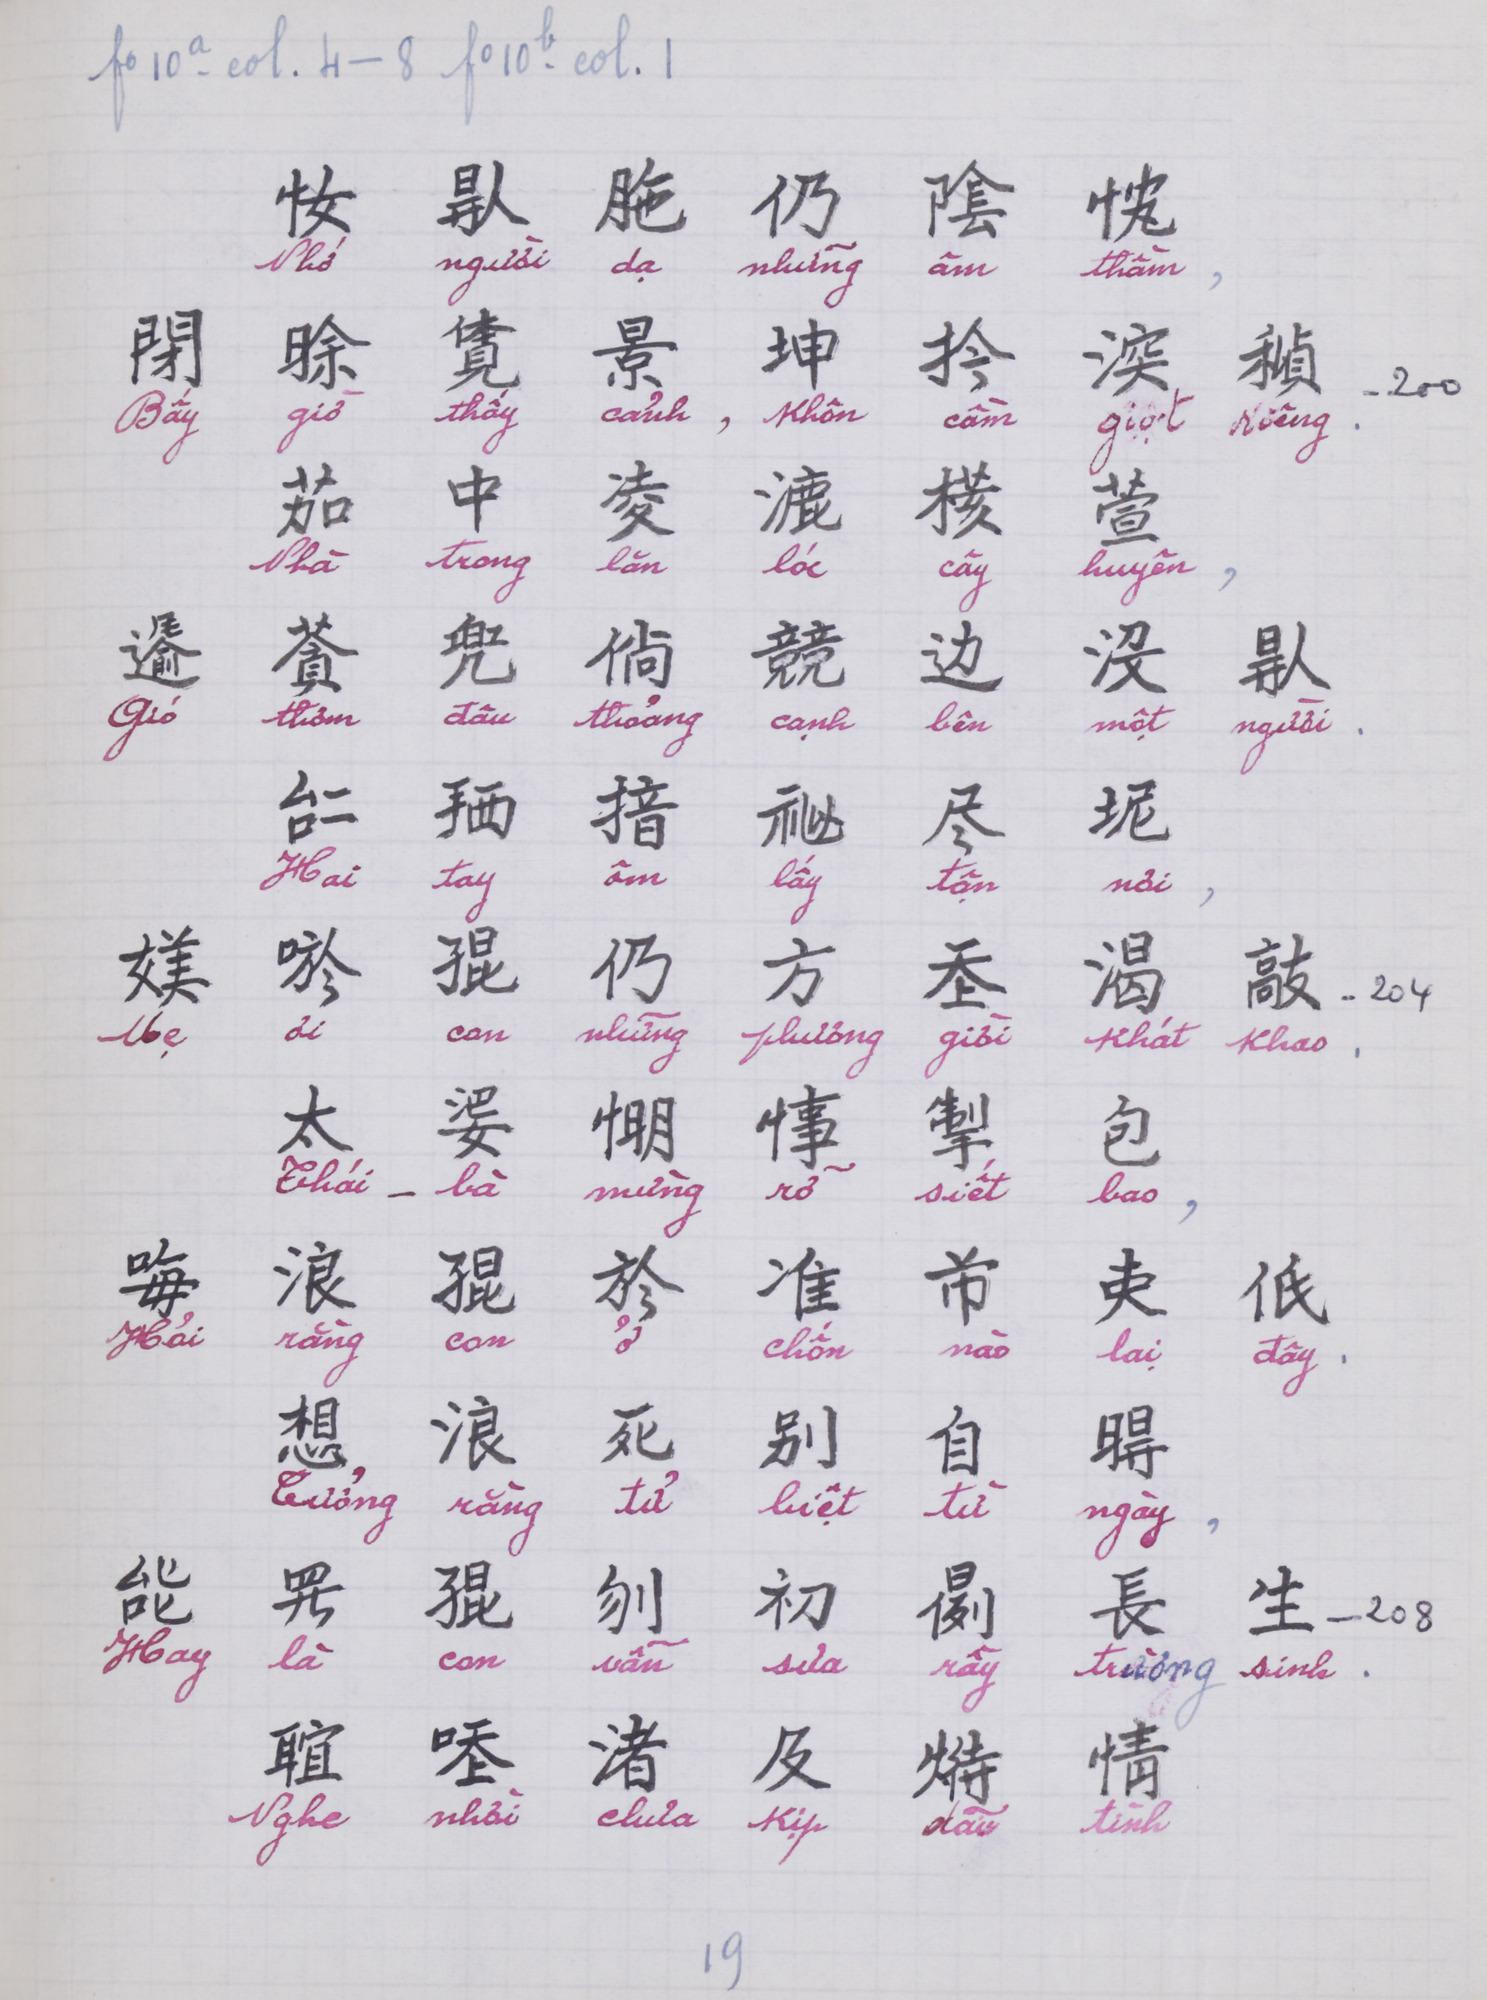 fo 10a- col. 4-8 fo 10b- col. 1
𢖵 𠊛 胣 仍 陰
Nhớ người dạ những âm thầm,
閉 𣇞 𧡊 景 坤 扲 淚
Bấy giờ thấy cảnh, khôn cầm giọt riêng. -200
茹 中 凌 漉 核 萱
Nhà trong lăn lóc cây huyên,
兜 倘 競 边 沒 𠊛
Gió thơm đâu thoảng cạnh bên một người.
𠄩 𢬣 揞 𥙩 尽 坭
Hai tay ôm lấy tận nơi,
媄 唹 𡥵 仍 方 𡗶 渴 敲 -204
Mẹ ơi con những phương giời khát khao.
太 婆 𢜏 掣 包
Thái-bà mừng rỡ siết bao,
𠳨 浪 𡥵 於 准 芾 吏 低
Hỏi rằng con ở chốn nào lại đây.
想 浪 死 別 自 𣈜
Tưởng rằng tử biệt từ ngày,
咍 𱺵 𡥵 刎 初 𠉝 長 生 -208
Hay là con vẫn sưa rầy trường sinh.
𦖑 𠳒 渚 及 情
Nghe nhời chưa kịp dẫu tình
19